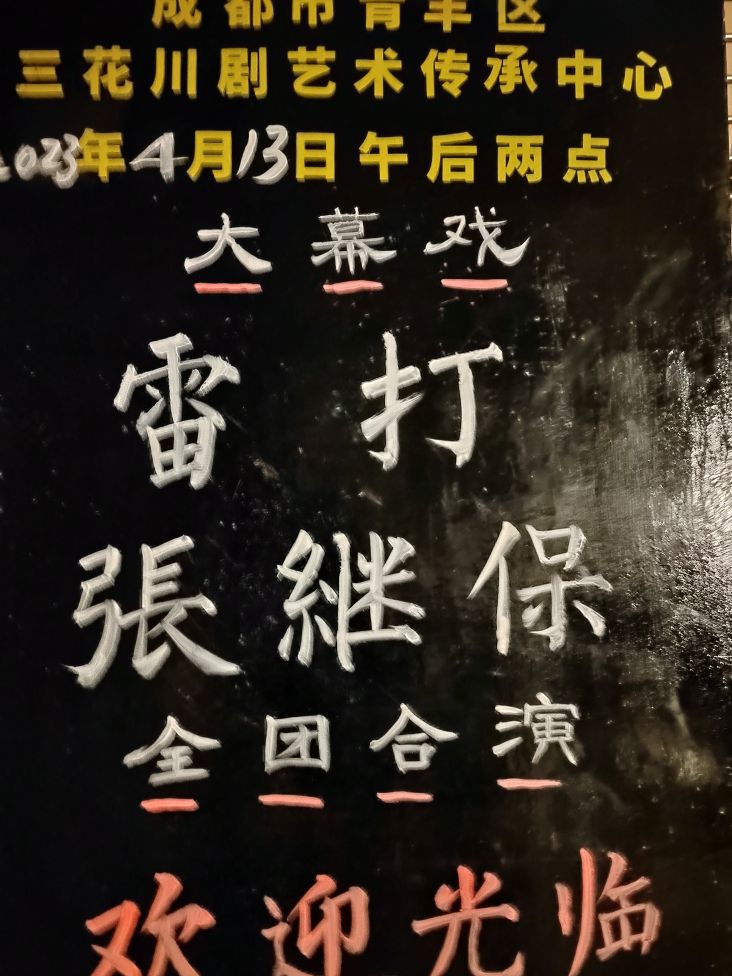 成都市青羊区
三花川剧艺术传承中心
2023年4月13日午后两点
大幕戏
雷打
張継保
全团合演
欢迎光临